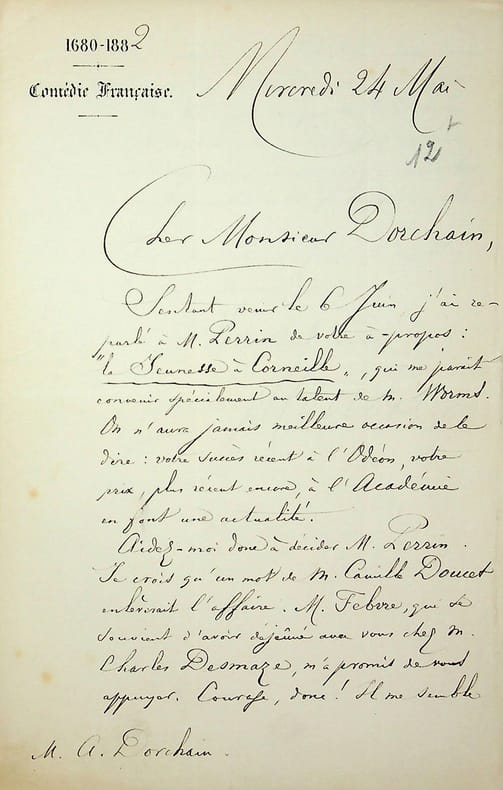 1680-1882
Comédie Française.
Mercredi 24 Mai
12
Cher Monsieur Dorchain,
Sentant venir le 6 Juin, j'ai re-
parlé à M. Perrin de votre à-propos :
"la Jeunesse à Corneille", qui me paraît
convenir spécialement au talent de M. Worms.
On n'aura jamais meilleure occasion de le
dire : votre succès récent à l'Odéon, votre
prix, plus récent encore, à l'Académie
en font une actualité.
Aidez-moi donc à décider M. Perrin.
Je crois qu'un mot de M. Camille Doucet
enlèverait l'affaire. M. Febvre, qui se
souvient d'avoir déjeûné avec vous chez M.
Charles Desmaze, m'a promis de vous
appuyer. Courage, donc ! Il me semble
M. A. Dorchain.